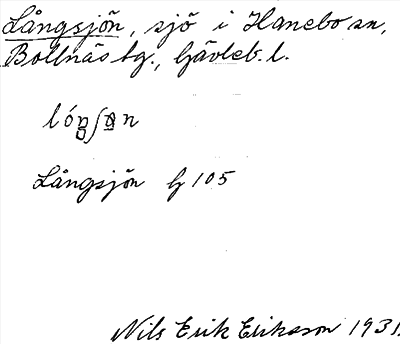 Långsjön, sjö i Hanebo sn,
Bollnäs tg., Gävleb. l.
Långsjön G 105
Nils Erik Eriksson 1931.